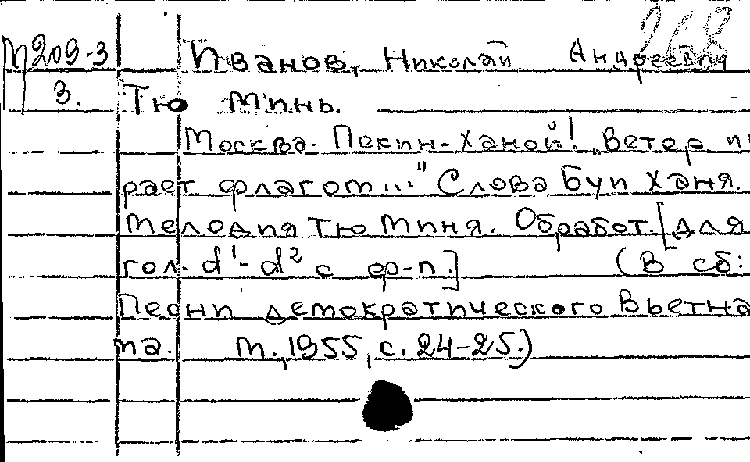 268
М209-3 Иванов, Николай Андреевич
3. Тю Минь.
Москва-Пекин-Ханой! „Ветер иг
рает флагом..." Слова Буи Ханя.
Мелодия Тю Миня. Обработ. [для
гол. d¹-d² с ф-п.] (В сб:
Песни демократического Вьетна
ма. М., 1955, с. 24-25.)